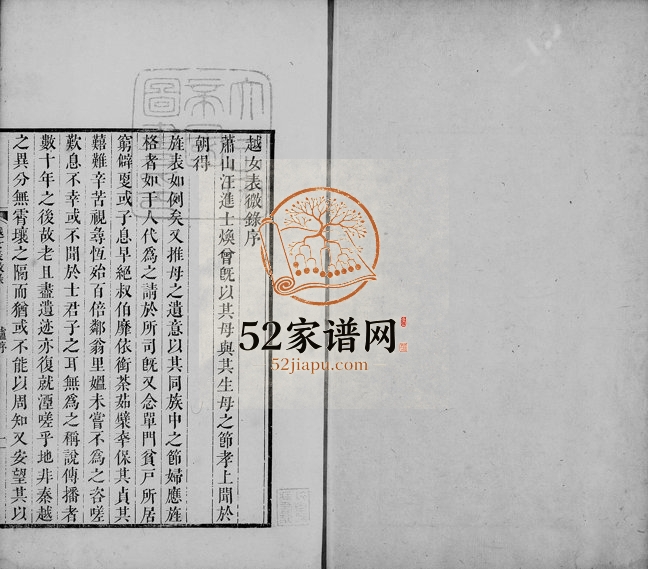 越女表微錄序
蕭山汪進士煥曾旣以其母與其生母之節孝上聞於
朝得
旌表如例矣又推母之遺意以其同族中之節婦應旌
格者如干人代爲之請於所司旣又念單門貧戶所居
窮僻或子息早絕叔伯靡依銜荼茹櫱幸保其貞其
艱難辛苦視尋恆殆百倍鄰翁里媼未嘗不爲之咨嗟
歎息不幸或不聞於士君子之耳無爲之稱說傳播者
數十年之後故老且盡遺迹亦復就湮嗟乎地非秦越
之異分無霄壤之隔而猶或不能以周知又安望其以
盧序
一
52家谱网
52jiapu.com